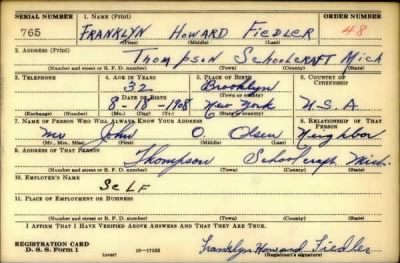 SERIAL NUMBER 1. NAME (Print) ORDER NUMBER
765 FRANKLYN HOWARD FIEDLER 48
(First) (Middle) (Last)
2. ADDRESS (Print)
Thompson Schoolcraft Mich
(Number and street or R. F. D. number) (Town) (County) (State)
3. TELEPHONE 4. AGE IN YEARS 5. PLACE OF BIRTH 6. COUNTRY OF CITIZENSHIP
32 Brooklyn
DATE OF BIRTH (Town or county)
8-18-1908 New York U.S.A
(Exchange) (Number) (Mo.) (Day) (Yr.) (State or country)
7. NAME OF PERSON WHO WILL ALWAYS KNOW YOUR ADDRESS 8. RELATIONSHIP OF THAT PERSON
Mr John O. Olsen Neighbor
(Mr., Mrs., Miss) (First) (Middle) (Last)
9. ADDRESS OF THAT PERSON
Thompson Schoolcraft Mich.
(Number and street or R. F. D. number) (Town) (County) (State)
10. EMPLOYER'S NAME
SeLF
11. PLACE OF EMPLOYMENT OR BUSINESS
(Number and street or R. F. D. number) (Town) (County) (State)
I AFFIRM THAT I HAVE VERIFIED ABOVE ANSWERS AND THAT THEY ARE TRUE.
REGISTRATION CARD
D. S. S. Form 1 (over) 16-17105 Franklyn Howard Fiedler
(Registrant's signature)